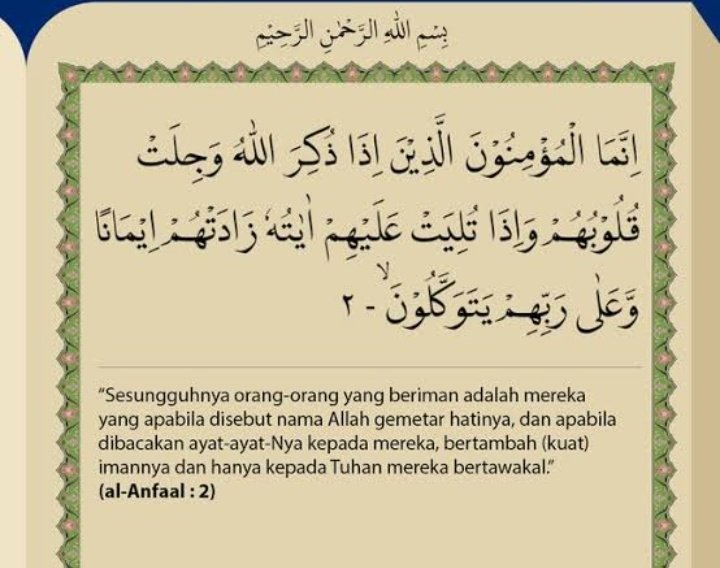 بِسْمِ اللّٰهِ الرَّحْمٰنِ الرَّحِيْمِ
اِنَّمَا الْمُؤْمِنُوْنَ الَّذِيْنَ اِذَا ذُكِرَ اللّٰهُ وَجِلَتْ
قُلُوْبُهُمْ وَاِذَا تُلِيَتْ عَلَيْهِمْ اٰيٰتُهٗ زَادَتْهُمْ اِيْمَانًا
وَّعَلٰى رَبِّهِمْ يَتَوَكَّلُوْنَۙ - ٢
“Sesungguhnya orang-orang yang beriman adalah mereka
yang apabila disebut nama Allah gemetar hatinya, dan apabila
dibacakan ayat-ayat-Nya kepada mereka, bertambah (kuat)
imannya dan hanya kepada Tuhan mereka bertawakal.”
(al-Anfaal : 2)